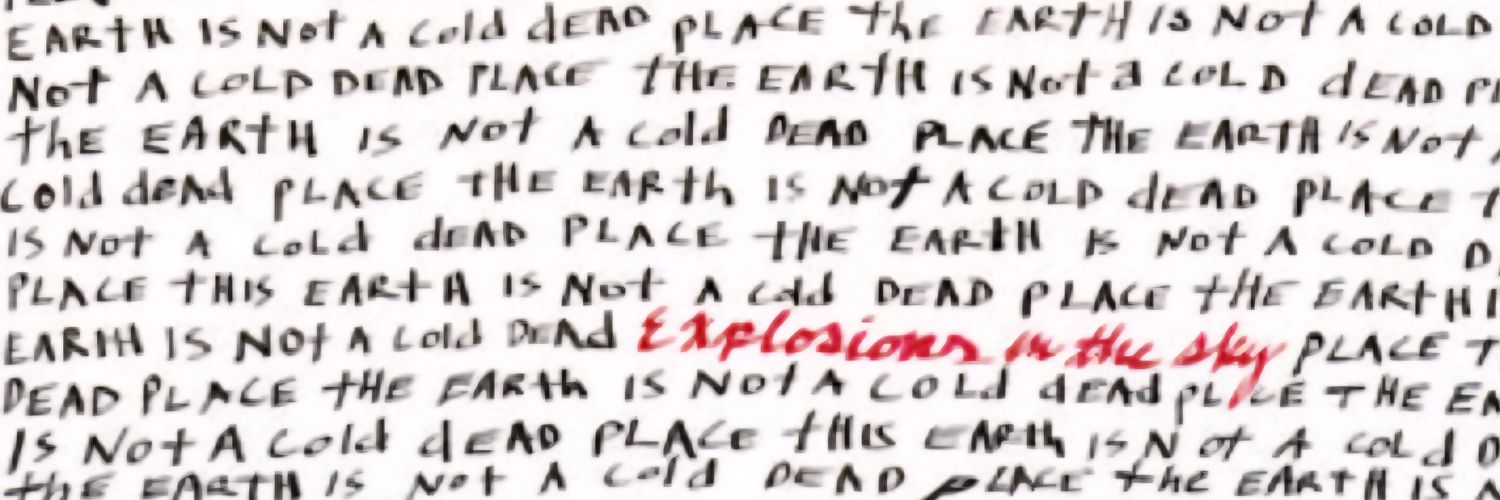 EARTH IS Not A Cold dEAD PLACE the EARTH IS Not A COLD
Not A COLD DEAD PLACE THE EARTH IS Not a COLD dEAD
thE EARtH IS Not A Cold DEAD PLACE THE EARTH IS Not
Cold deAd PLACE THE EARth IS Not A COLD dEAD PLACE
IS Not A CoLd dEAD PLACE THE EARTH IS Not A COLD
PLACE tHIS EARtH IS Not A Cold DEAD PLACE tHE EARtH
EARTH IS Not A Cold DEAd Explosions in the sky PLACE
DEAD PLACE tHE EARth IS Not A COLd dEAd pLACE THE
IS Not A Cold dEAD PLACe tHIS EARth IS Not A Cold
thE EARTH IS Not A Cold DEAD PLACE the EARTH IS